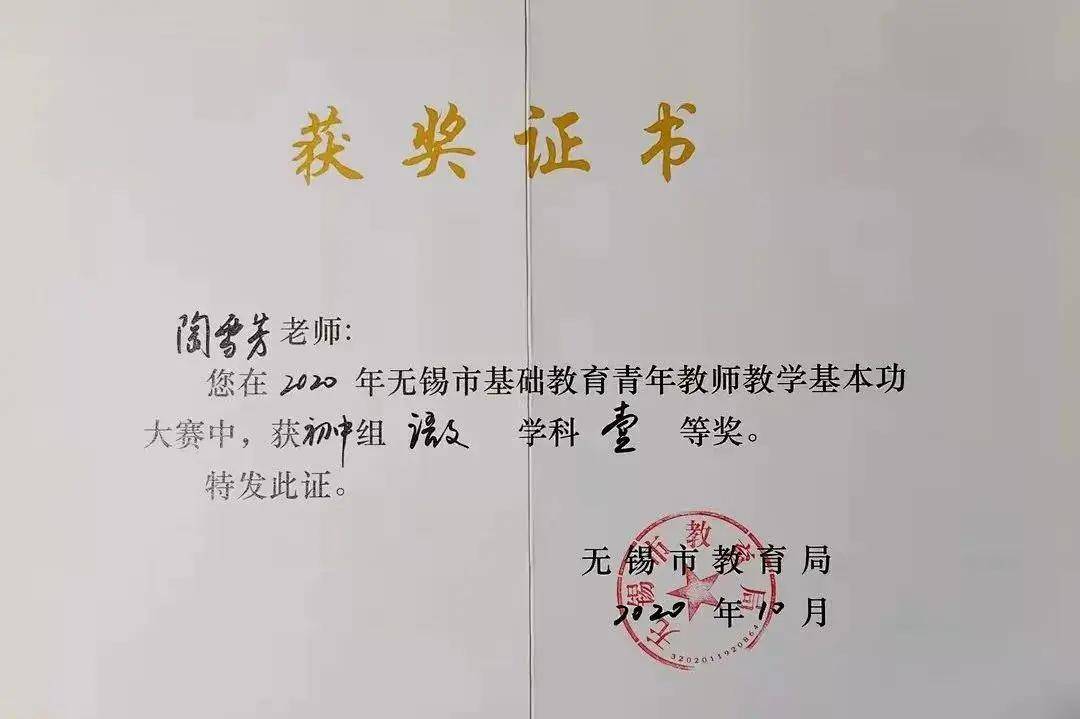 获奖证书
陶雪芳老师:
您在2020年无锡市基础教育青年教师教学基本功
大赛中，获初中组 语文 学科 壹 等奖。
特发此证。
无锡市教育局
2020年10月
无锡市教育局
3202011920864